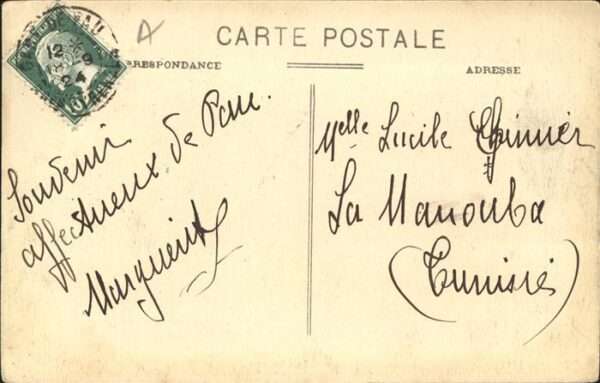 A
CARTE POSTALE
RRESPONDANCE
ADRESSE
12
24
Souvenir
affectueux de Pau.
Marguerite
Melle Lucile
La Manouba
(Tunisie)